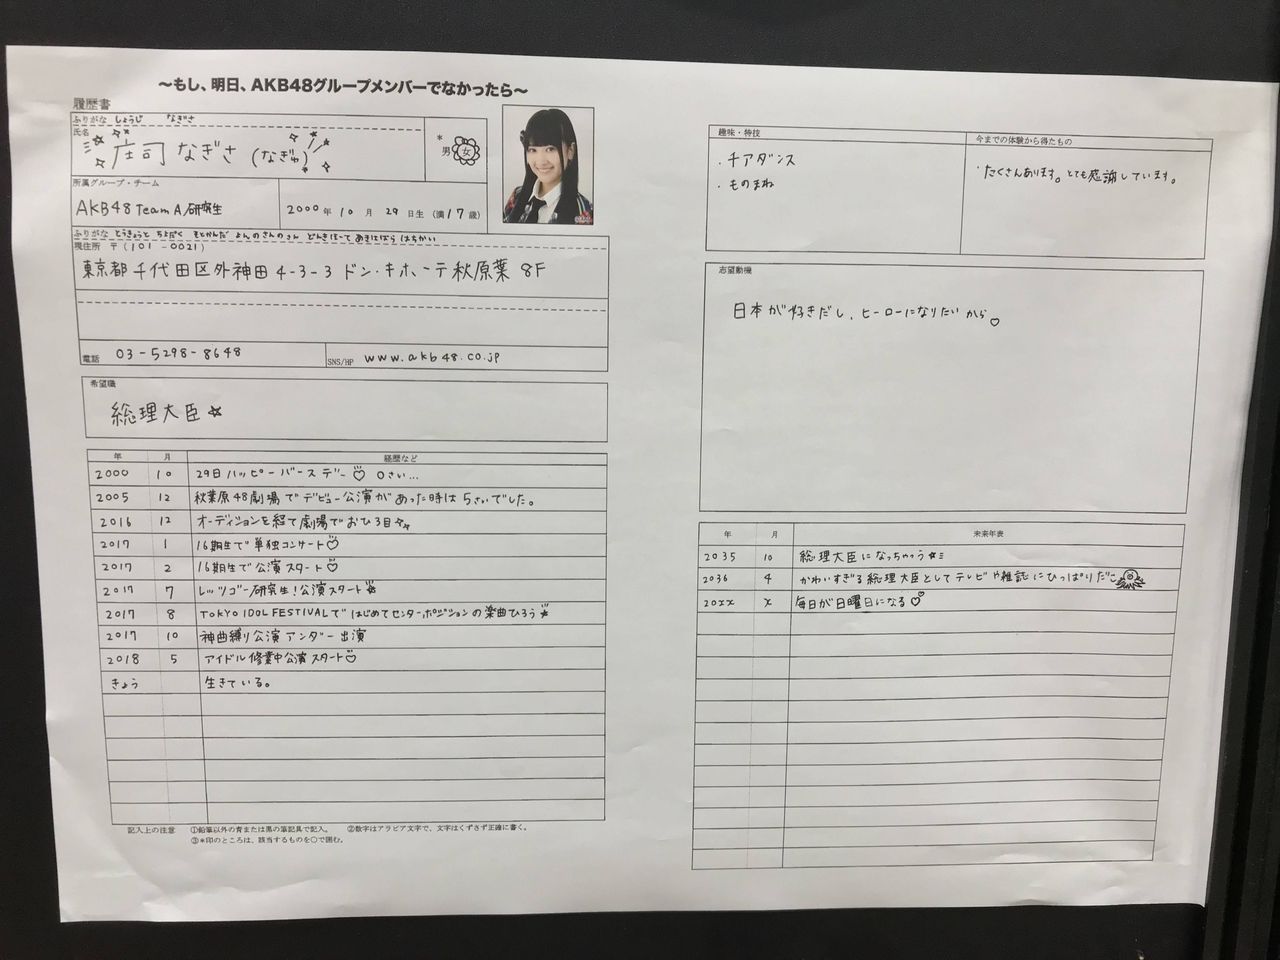 ～もし、明日、AKB48グループメンバーでなかったら～
履歴書
ふりがな しょうじ なぎさ
氏名
庄司 なぎさ (なぎゅ)
＊
男 女
所属グループ・チーム
AKB48 Team A/研究生
2000 年 10 月 29 日生 (満 17 歳)
ふりがな とうきょうと ちよだく そとかんだ よんのさんのさん どんきほーて あきはばら はちかい
現住所 〒(101 -0021)
東京都千代田区外神田4-3-3 ドン・キホーテ秋葉原 8F
電話 03-5298-8648
SNS/HP www.akb48.co.jp
希望職
総理大臣☆
年 月 経歴など
2000 10 29日ハッピーバースデー♡ 0さい...
2005 12 秋葉原48劇場でデビュー公演があった時は5さいでした。
2016 12 オーディションを経て劇場でおひろ目☆☆
2017 1 16期生で単独コンサート♡
2017 2 16期生で公演スタート♡
2017 7 レッツゴー研究生!公演スタート☆
2017 8 TOKYO IDOL FESTIVALではじめてセンターポジションの楽曲ひろう☆
2017 10 神曲縛り公演アンダー出演
2018 5 アイドル修業中公演スタート♡
きょう 生きている。
記入上の注意 ①鉛筆以外の青または黒の筆記具で記入。 ②数字はアラビア文字で、文字はくずさず正確に書く。
③＊印のところは、該当するものを○で囲む。
趣味・特技
・チアダンス
・ものまね
今までの体験から得たもの
・たくさんあります。とても感謝しています。
志望動機
日本が好きだし、ヒーローになりたいから♡
年 月 未来年表
2035 10 総理大臣になっちゃう☆
2036 4 かわいすぎる総理大臣としてテレビや雑誌にひっぱりだこ
20XX X 毎日が日曜日になる♡